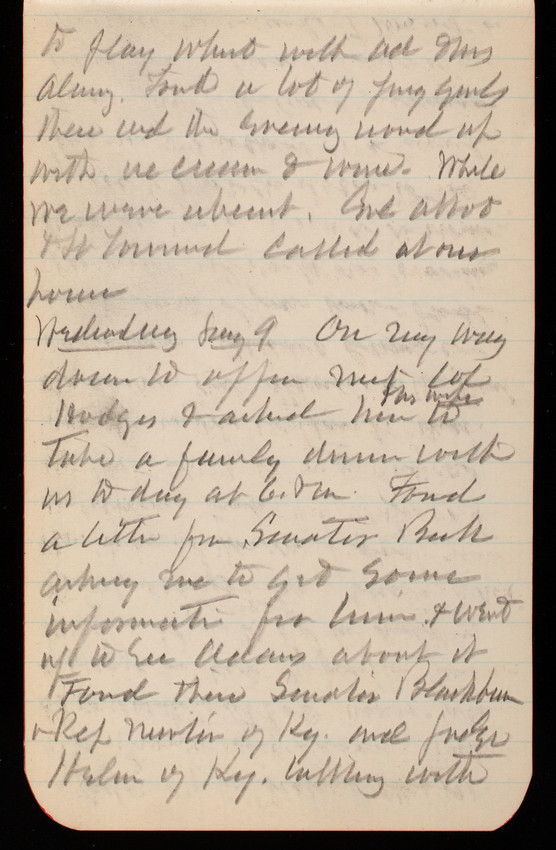 to play whist with Ad this
along. Found a lot of young girls
there and the evening wound up
with ice cream & wine. While
we were absent, Col Abbot
& H Townsend called at our
house
Wednesday Jany 9 On my way
down to office met Col
Hodges & asked him to & his wife
take a family dinner with
us to day at 6. P m. Found
a letter from Senator Beck
asking me to get some
information for him & went
up to see Adams about it
Found there Senator Blackburn
& Rep of Ky. and Judge
of Ky. talking with